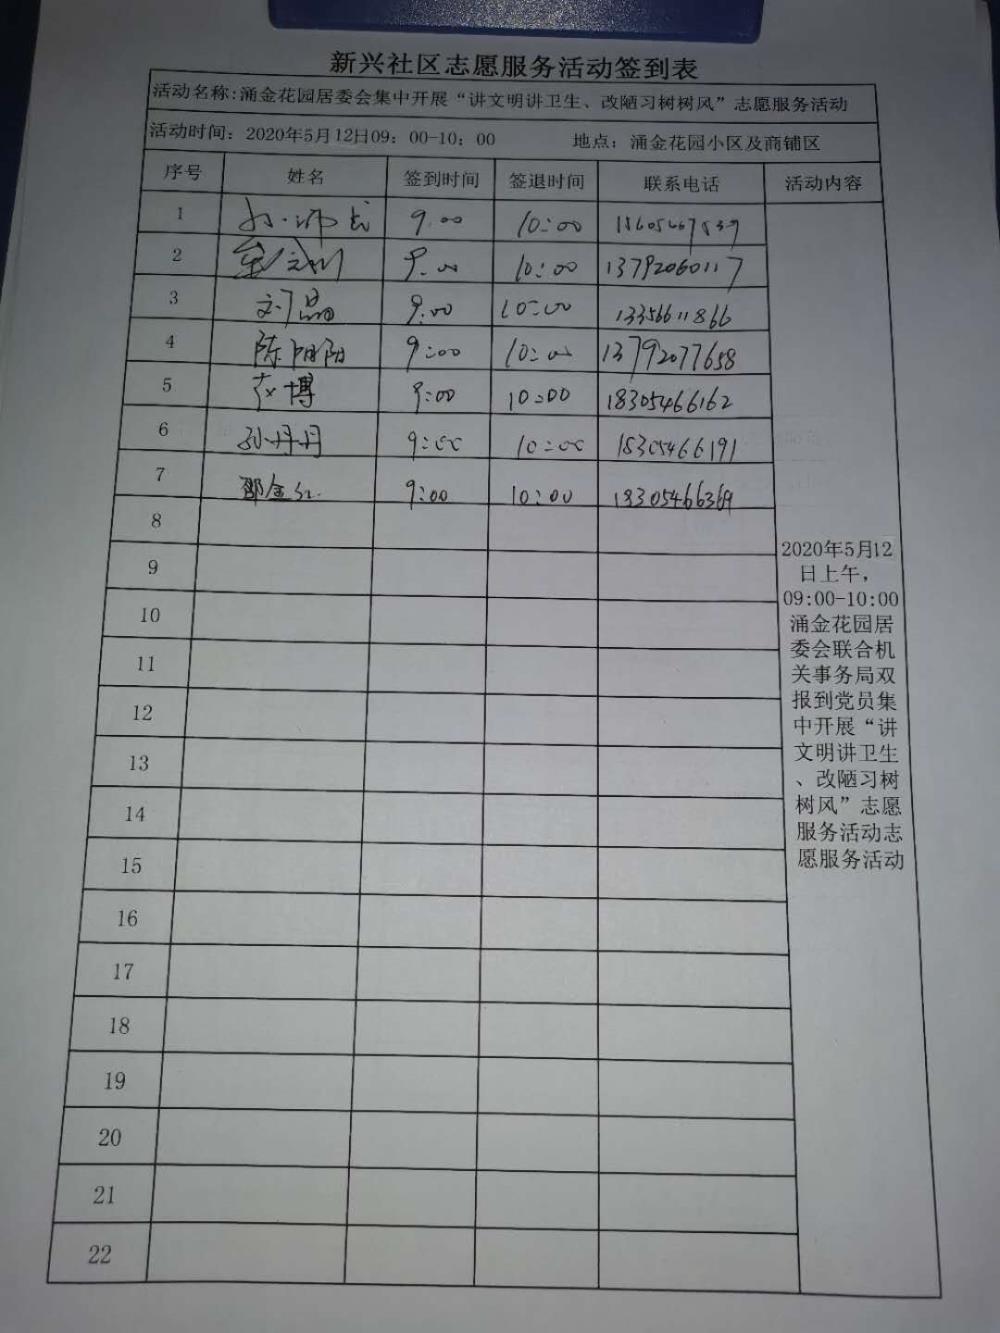 新兴社区志愿服务活动签到表
活动名称:涌金花园居委会集中开展“讲文明讲卫生、改陋习树树风”志愿服务活动
活动时间：2020年5月12日09：00-10：00 地点：涌金花园小区及商铺区
序号 姓名 签到时间 签退时间 联系电话 活动内容
1 9:00 10:00
2 9:00 10:00 13792060117
3 刘晶 9:00 10:00 13356611866
4 陈阳阳 9:00 10:00 13792077658
5 博 9:00 10:00 18305466162
6 孙丹丹 9:00 10:00 18305466191
7 邵金红 9:00 10:00 18305466369
8
9
10
11
12
13
14
15
16
17
18
19
20
21
22
2020年5月12
日上午，
09:00-10:00
涌金花园居
委会联合机
关事务局双
报到党员集
中开展“讲
文明讲卫生
、改陋习树
树风”志愿
服务活动志
愿服务活动